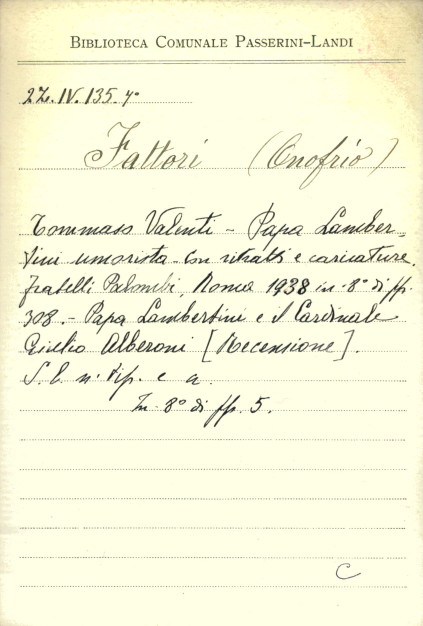 BIBLIOTECA COMUNALE PASSERINI-LANDI
2Z. IV. 135. 4°
Fattori (Onofrio)
Tommaso Valenti - Papa Lamber-
tini umorista - con ritratti e caricature.
Fratelli Palombi, Roma 1938 in-8° di pp.
308. - Papa Lambertini e il Cardinale
Giulio Alberoni [Recensione].
S. L. n. tip. e a.
In-8° di pp. 5.
C